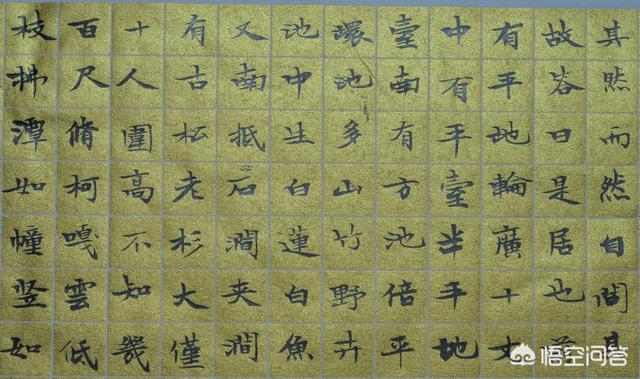 其然而然自問其
故答曰是居也前
有平地輪廣十丈
中有平臺半平地
臺南有方池倍平
環池多山竹野卉
池中生白蓮白魚
又南抵石澗夾澗
有古松老杉大僅
十人圍高不知幾
百尺脩柯嘎雲低
枝拂潭如幢竖如
悟空问答